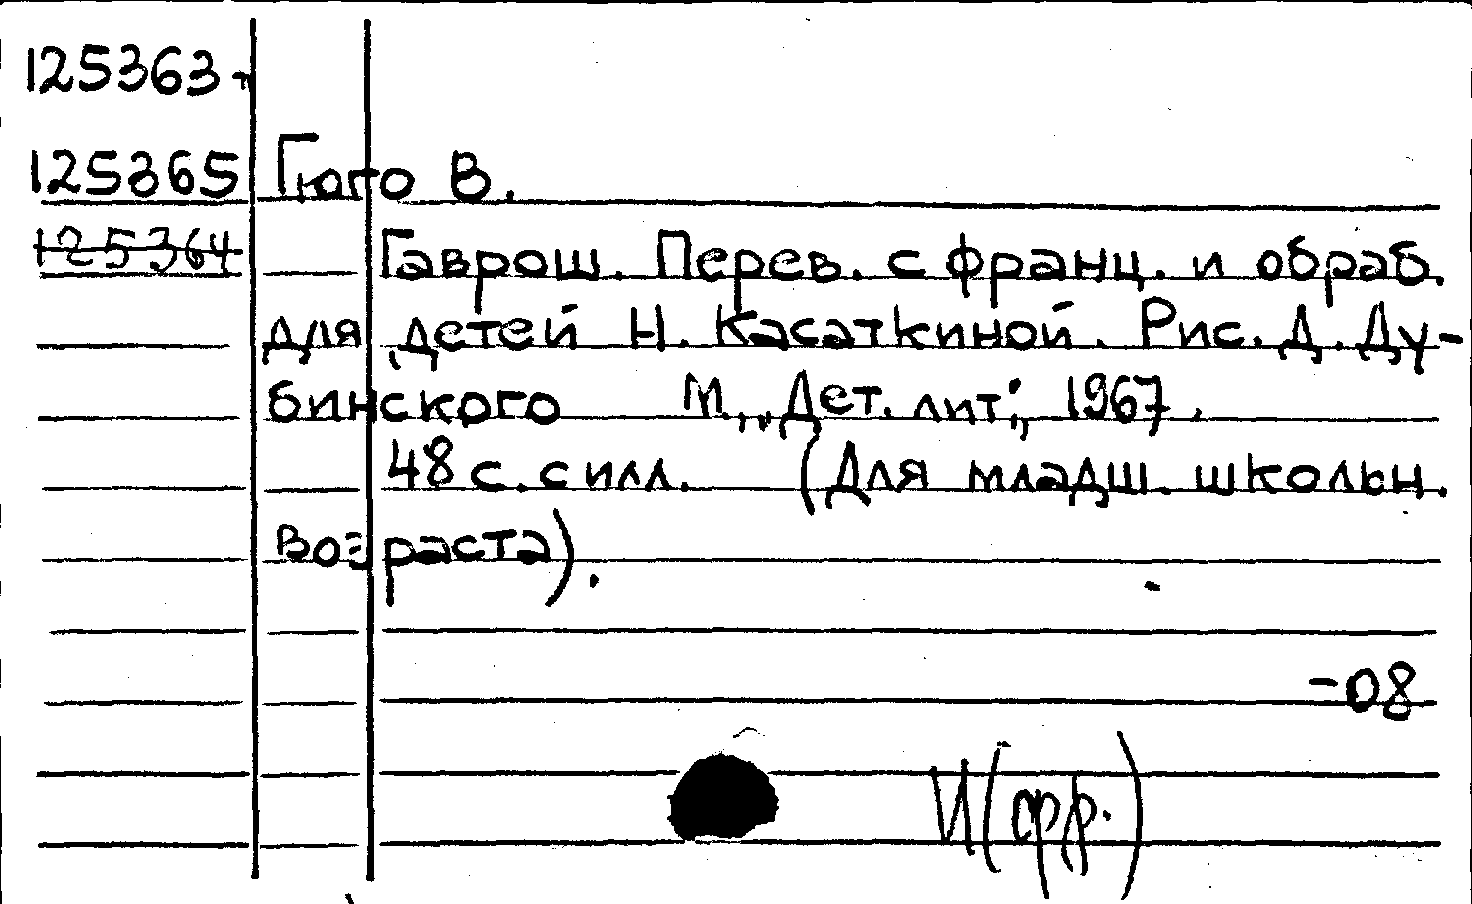 125363-
125365 Гюго В.
125364 Гаврош. Перев. с франц. и обраб.
для детей Н. Касаткиной. Рис. Д. Ду-
бинского М., "Дет. лит", 1967.
48 с. с илл. (Для младш. школьн.
возраста).
-08
И(фр.)